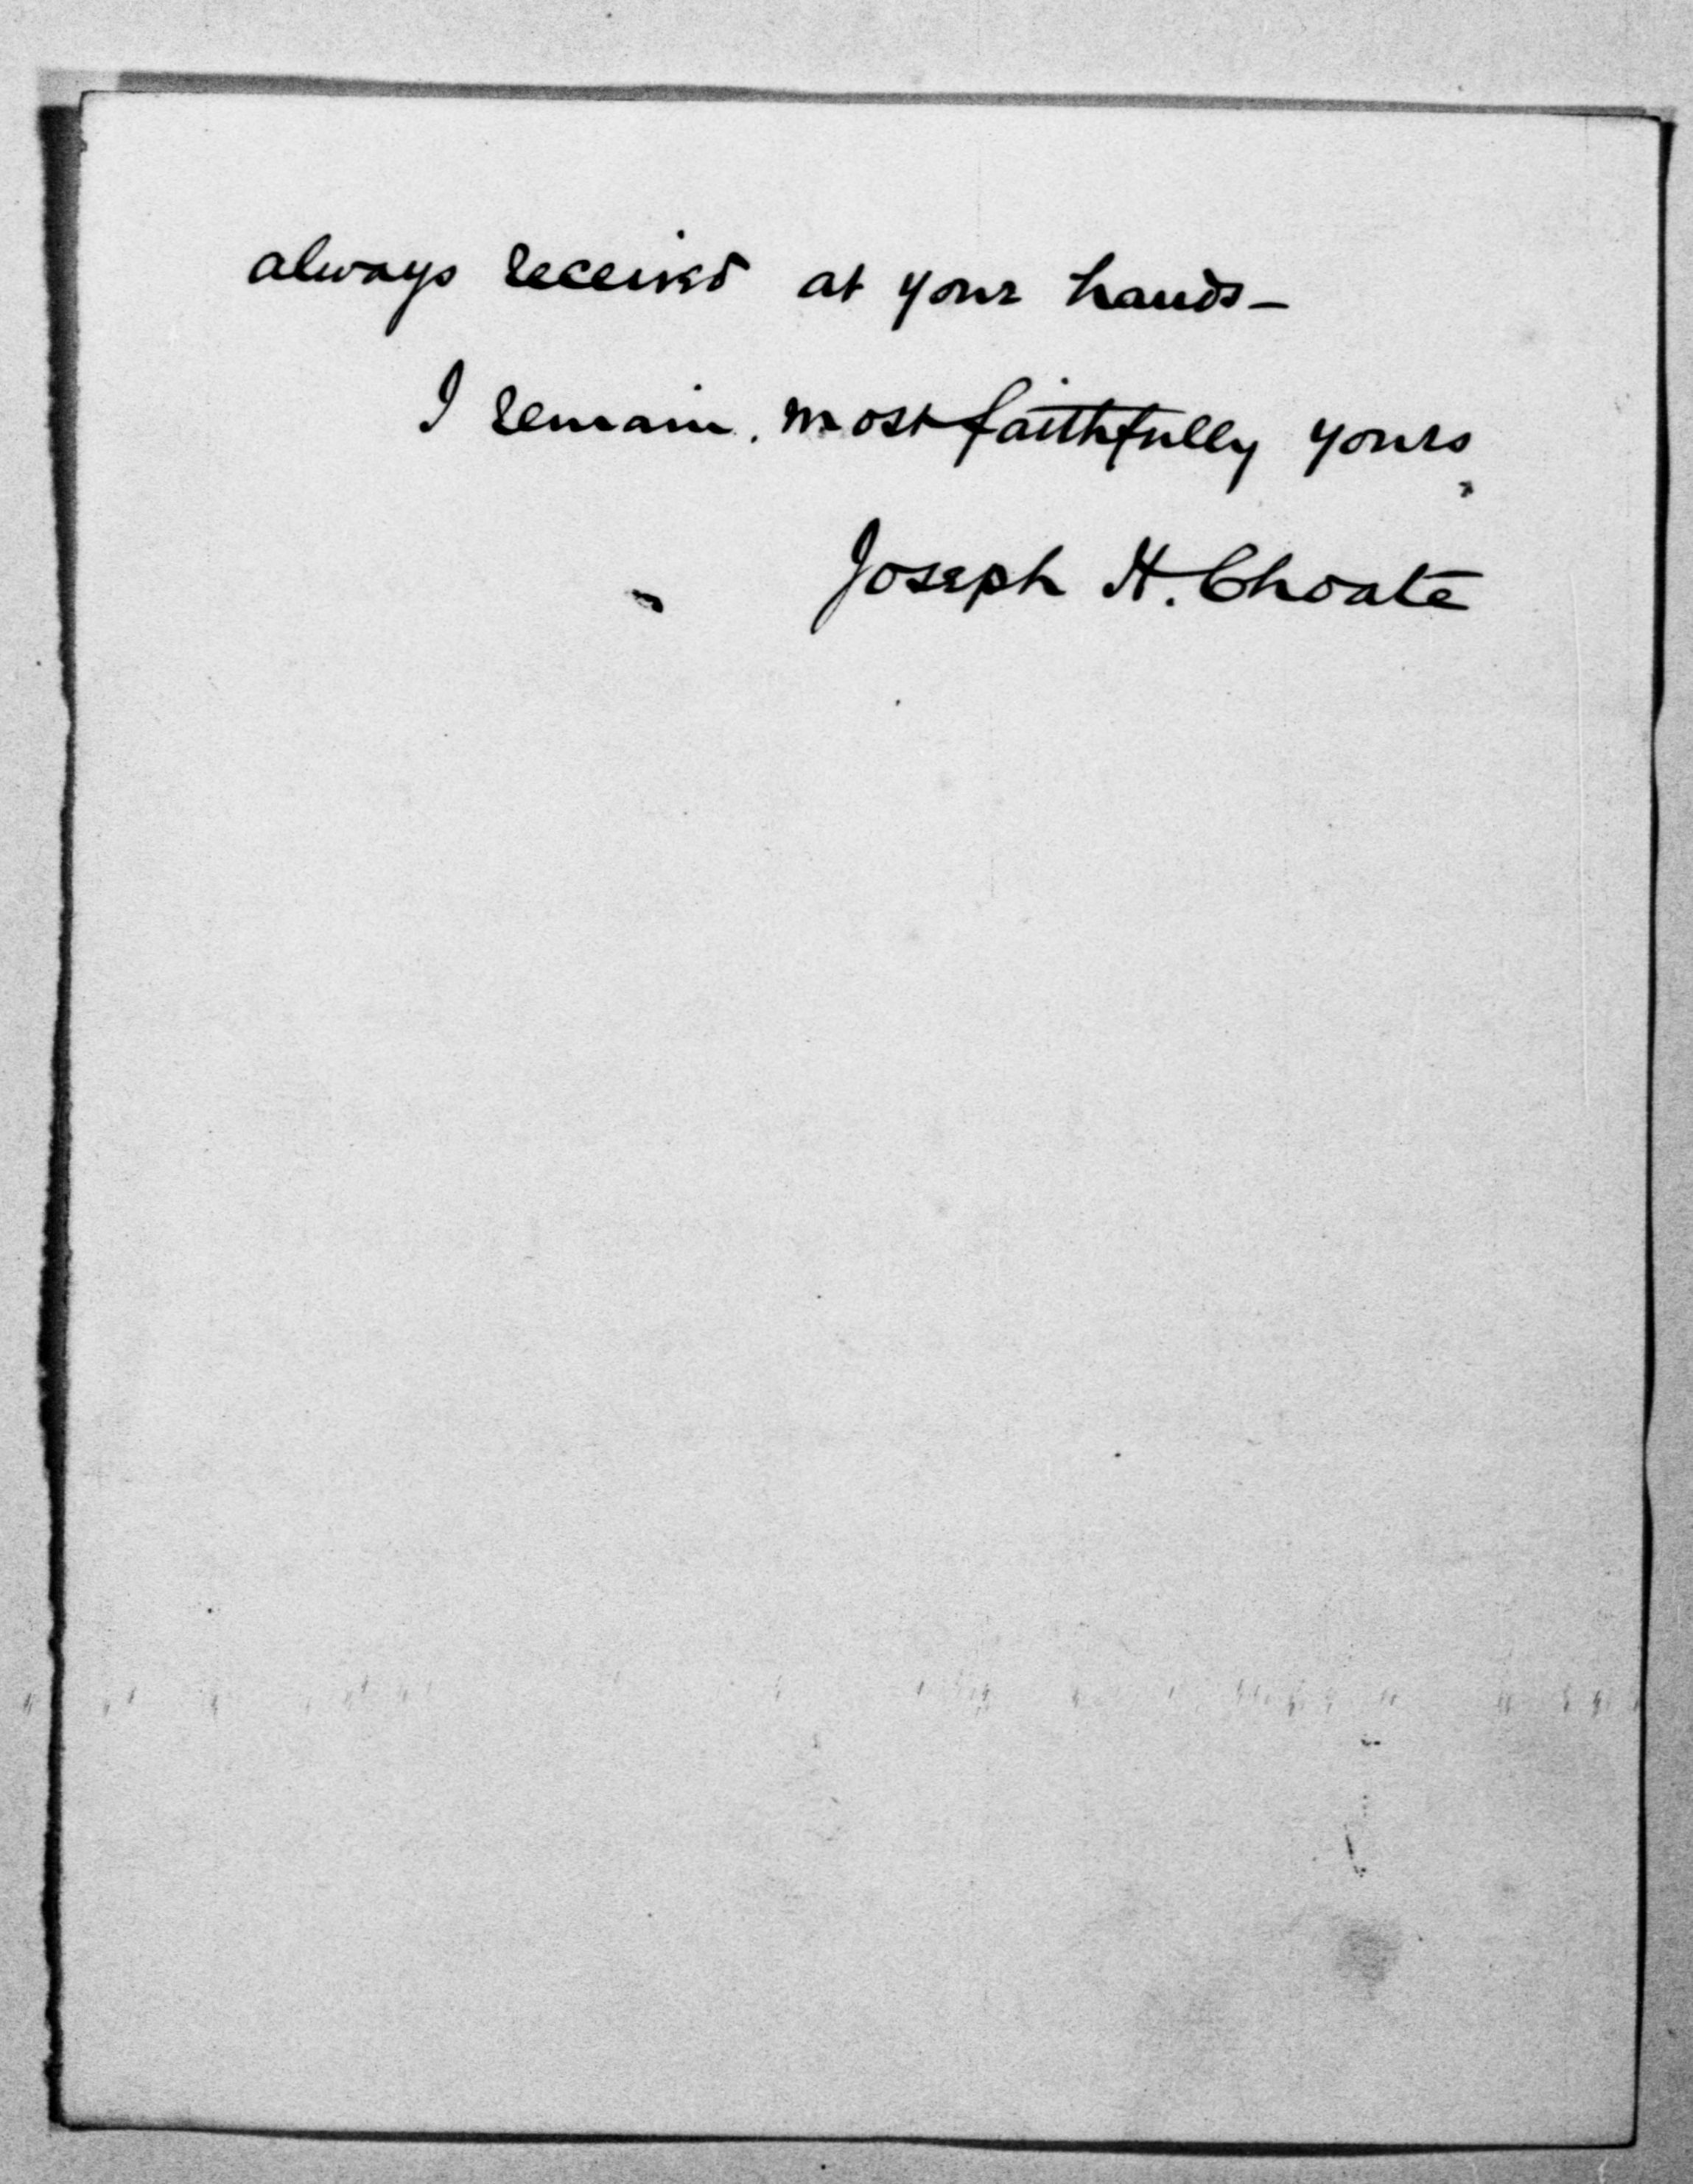 always received at your hands—
I remain, most faithfully yours
Joseph H. Choate